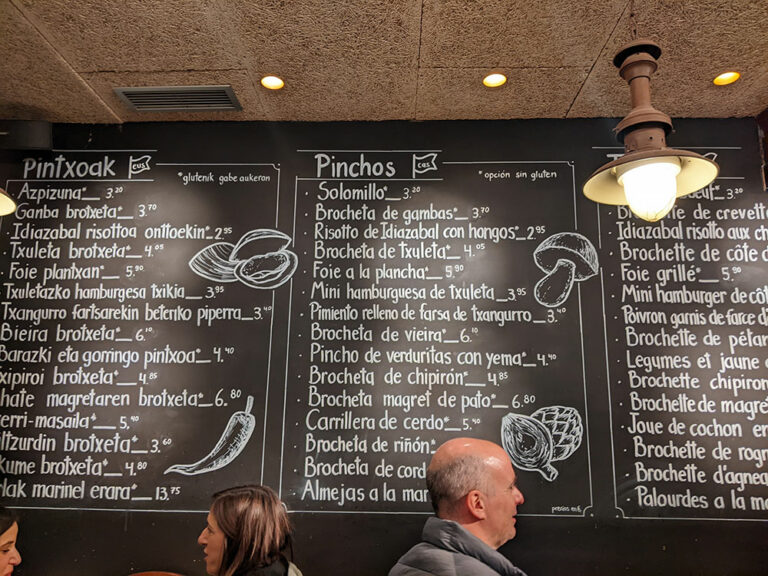 Pintxoak eus
*glutenik gabe aukeran
Azpizuna*__3.20
Ganba brotxeta*__3.70
Idiazabal risottoa onttoekin*__2.95
Txuleta brotxeta*__4.05
Foie plantxan*__5.90
Txuletazko hamburgesa txikia__3.95
Txangurro fartsarekin beteriko piperra__3.40
Bieira brotxeta*__6.10
Barazki eta gorringo pintxoa*__4.40
Txipiroi brotxeta*__4.85
magretaren brotxeta*__6.80
erri-masaila*__5.40
ltzurdin brotxeta*__3.60
kume brotxeta*__4.80
lak marinel erara*__13.75
Pinchos cas
*opción sin gluten
Solomillo*__3.20
Brocheta de gambas*__3.70
Risotto de Idiazabal con hongos*__2.95
Brocheta de txuleta*__4.05
Foie a la plancha*__5.90
Mini hamburguesa de txuleta__3.95
Pimiento relleno de farsa de txangurro__3.40
Brocheta de vieira*__6.10
Pincho de verduritas con yema*__4.40
Brocheta de chipirón*__4.85
Brocheta magret de pato*__6.80
Carrillera de cerdo*__5.40
Brocheta de riñón*
Brocheta de cord
Almejas a la mar
precios en €
3.20
Brochette de crevette
Idiazabal risotto aux ch
Brochette de côte d
Foie grillé*__5.90
Mini hamburger de côt
Poivron garnis de farce d
Brochette de pétan
Legumes et jaune d
Brochette chipiron
Brochette de magre
Joue de cochon en
Brochette de rogn
Brochette d'agnea
Palourdes a la ma